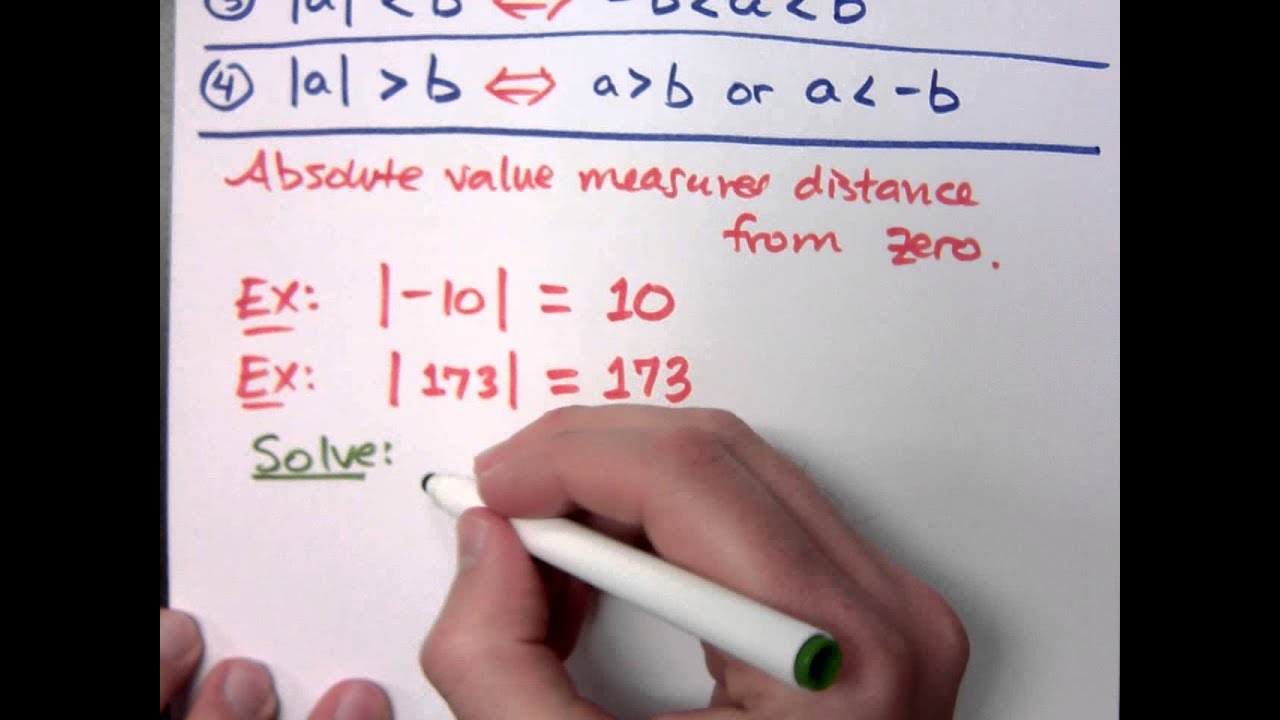 ③ |a| < b ⇔ -b < a < b
④ |a| > b ⇔ a > b or a < -b
Absolute value measures distance
from zero.
Ex: |-10| = 10
Ex: |173| = 173
Solve: